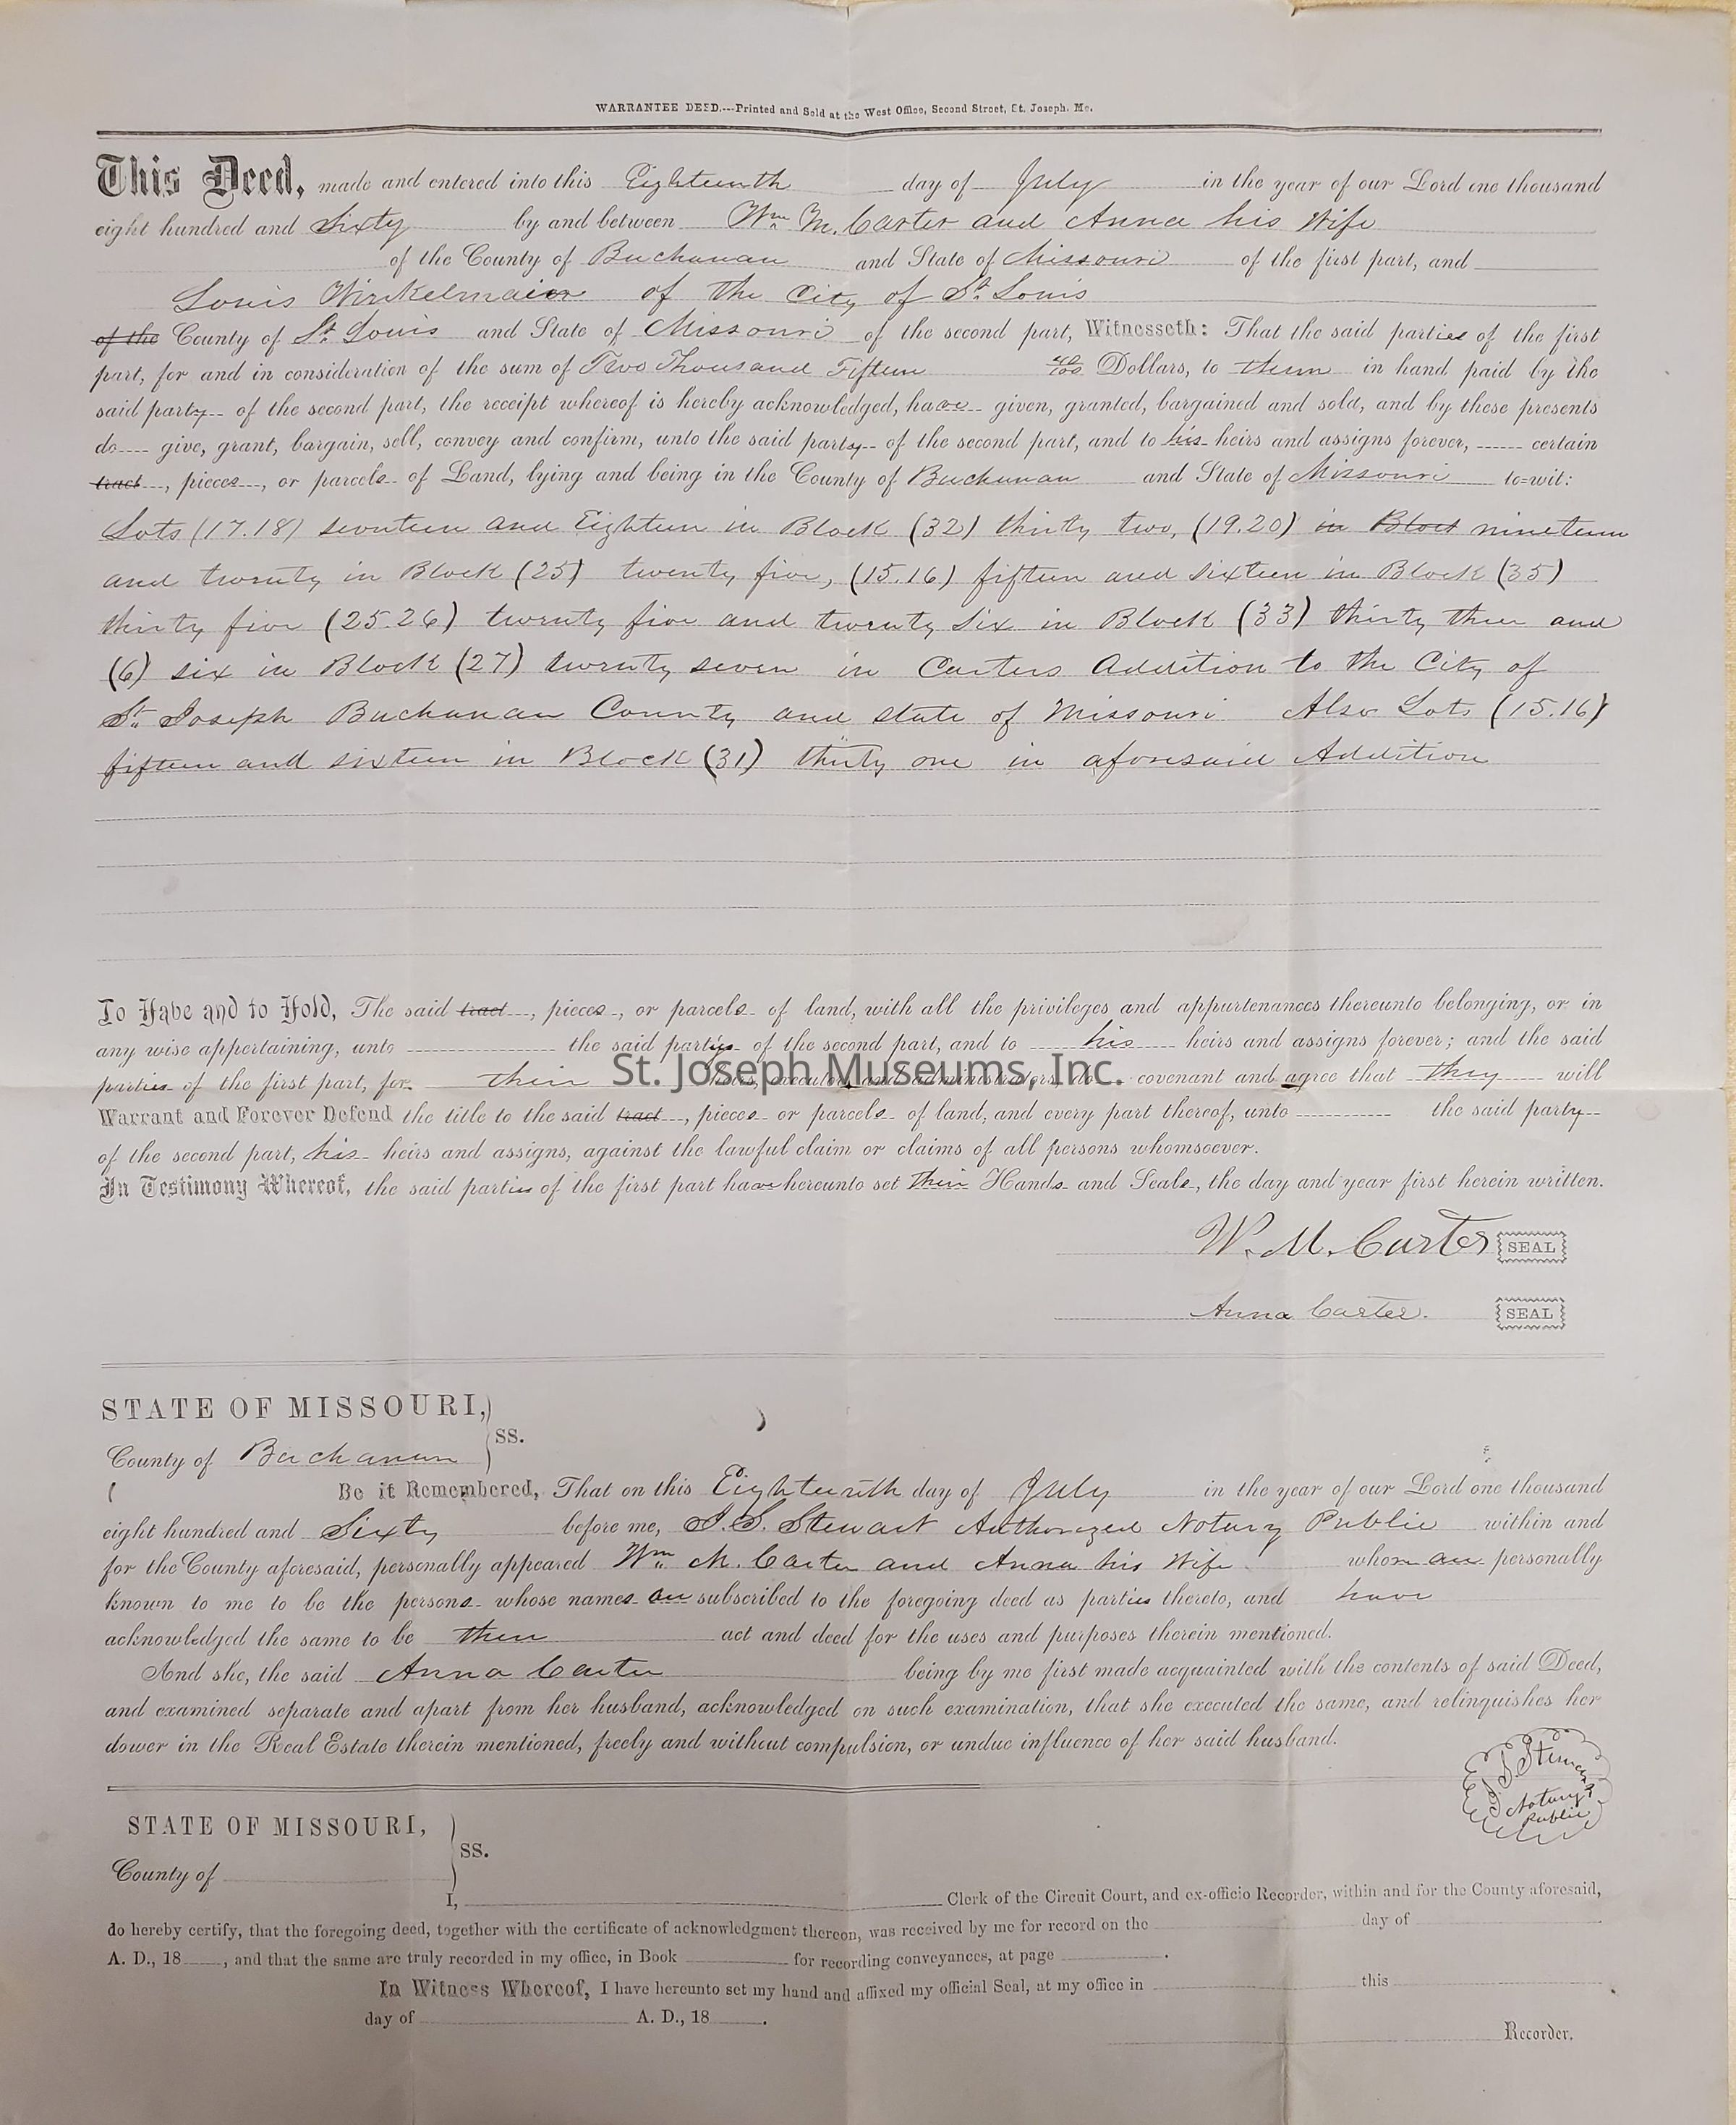 WARRANTEE DEED.---Printed and Sold at the West Office, Second Street, St. Joseph. Mo.
This Deed, made and entered into this Eighteenth day of July in the year of our Lord one thousand
eight hundred and Sixty by and between Wm M. Carter and Anna his Wife
of the County of Buchanan and State of Missouri of the first part, and
Louis Winkelmaier of the City of St. Louis
of the County of St. Louis and State of Missouri of the second part, Witnesseth: That the said parties of the first
part, for and in consideration of the sum of Two Thousand Fifteen Dollars, to them in hand paid by the
said party of the second part, the receipt whereof is hereby acknowledged, have given, granted, bargained and sold, and by these presents
do give, grant, bargain, sell, convey and confirm, unto the said party of the second part, and to his heirs and assigns forever, certain
tract, pieces, or parcels of Land, lying and being in the County of Buchanan and State of Missouri to=wit:
Lots (17.18) seventeen and Eighteen in Block (32) thirty two, (19.20) in Block nineteen
and twenty in Block (25) twenty five, (15.16) fifteen and sixteen in Block (35)
thirty five (25.26) twenty five and twenty six in Block (33) thirty three and
(6) six in Block (27) twenty seven in Carters Addition to the City of
St. Joseph Buchanan County and state of Missouri Also Lots (15.16)
fifteen and sixteen in Block (31) thirty one in aforesaid Addition
To Have and to Hold, The said tract, pieces, or parcels of land, with all the privileges and appurtenances thereunto belonging, or in
any wise appertaining, unto the said party of the second part, and to his heirs and assigns forever; and the said
parties of the first part, for their heirs, executors and administrators, do covenant and agree that they will
St. Joseph Museums, Inc.
Warrant and Forever Defend the title to the said tract, pieces or parcels of land, and every part thereof, unto the said party
of the second part, his heirs and assigns, against the lawful claim or claims of all persons whomsoever.
In Testimony Whereof, the said parties of the first part have hereunto set their Hands and Seals, the day and year first herein written.
W. M. Carter SEAL
Anna Carter. SEAL
STATE OF MISSOURI,
SS.
County of Buchanan
Be it Remembered, That on this Eighteenth day of July in the year of our Lord one thousand
eight hundred and Sixty before me, J. S. Stewart Authorized Notary Public within and
for the County aforesaid, personally appeared Wm M. Carter and Anna his Wife whom are personally
known to me to be the persons whose names are subscribed to the foregoing deed as parties thereto, and have
acknowledged the same to be their act and deed for the uses and purposes therein mentioned.
And she, the said Anna Carter being by me first made acquainted with the contents of said Deed,
and examined separate and apart from her husband, acknowledged on such examination, that she executed the same, and relinquishes her
dower in the Real Estate therein mentioned, freely and without compulsion, or undue influence of her said husband.
Notary
Public
STATE OF MISSOURI,
SS.
County of
I, Clerk of the Circuit Court, and ex-officio Recorder, within and for the County aforesaid,
do hereby certify, that the foregoing deed, together with the certificate of acknowledgment thereon, was received by me for record on the day of
A. D., 18 , and that the same are truly recorded in my office, in Book for recording conveyances, at page .
In Witness Whereof, I have hereunto set my hand and affixed my official Seal, at my office in this
day of A. D., 18 .
Recorder.